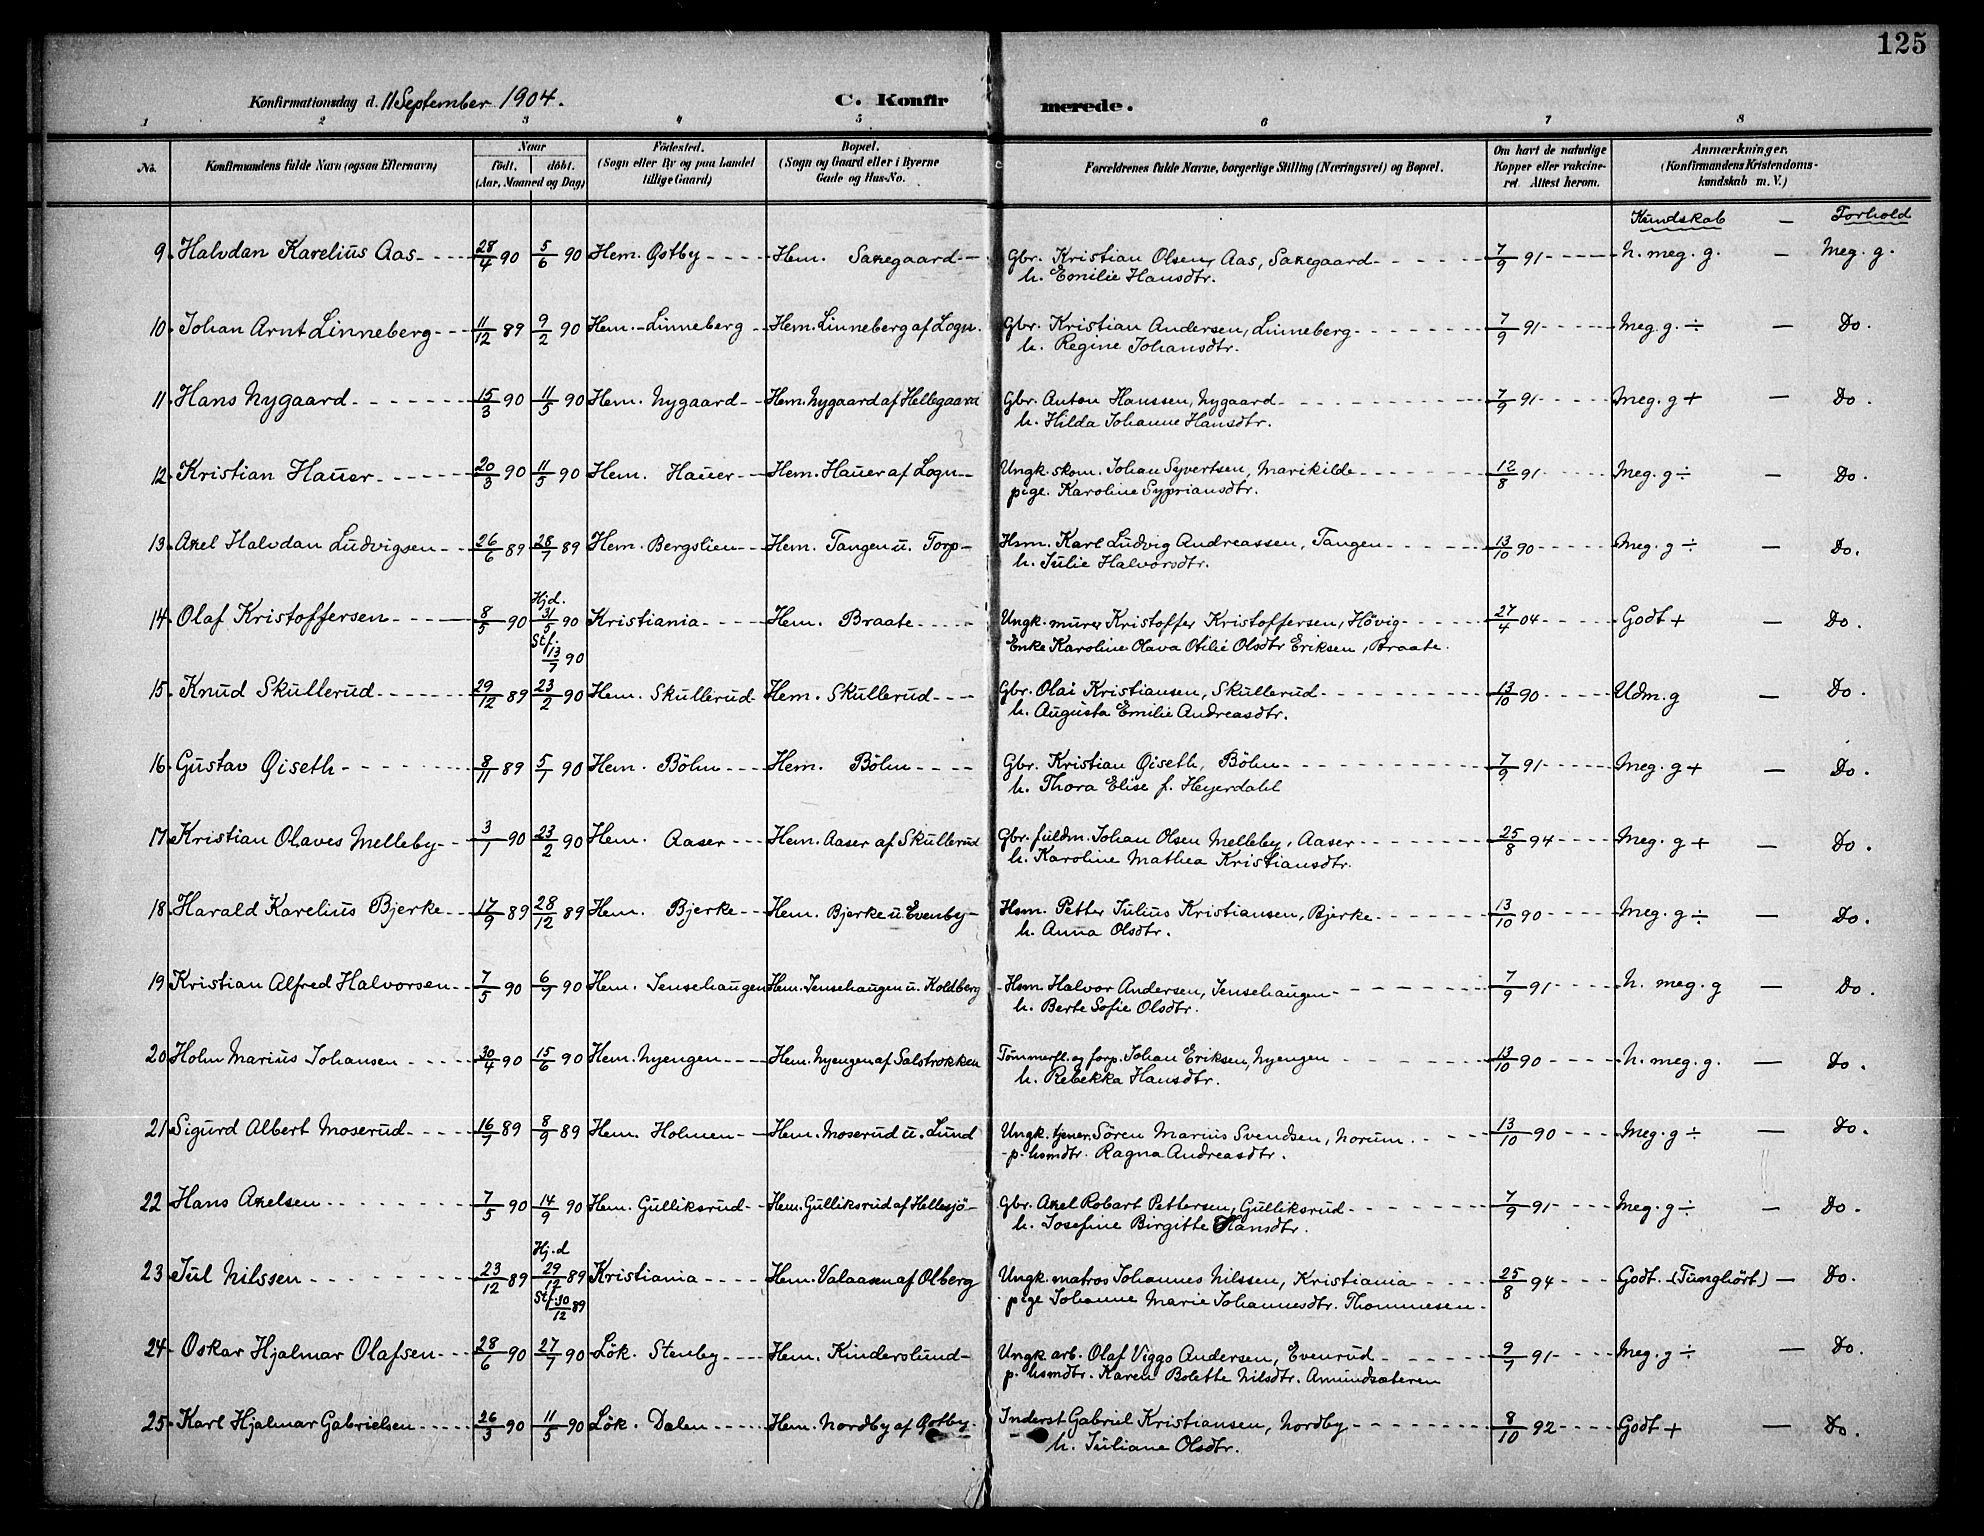 125
Konfirmationsdag d. 11 September 1904.
C. Konfirmerede.
1 2 3 4 5 6 7 8
No. Konfirmandens fulde Navn (ogsaa Efternavn) Naar født, døbt. (Aar, Maaned og Dag) Fødested. (Sogn eller By og paa Landet tillige Gaard) Bopæl. (Sogn og Gaard eller i Byerne Gade og Hus-No. Forældrenes fulde Navne, borgerlige Stilling (Næringsvei) og Bopæl. Om havt de naturlige Kopper eller vakcineret Attest herom. Anmærkninger. (Konfirmandens Kristendomskundskab m. V.)
Kundskab — Forhold
9. Halvdan Karelius Aas 28/4 90 5/6 90 Hem. Østby Hem. Saxegaard Gbr. Kristian Olsen Aas, Saxegaard 7/9 91 N. meg. g. — Meg. g.
h. Emilie Hansdtr.
10. Johan Arnt Linneberg 11/12 89 9/2 90 Hem. Linneberg Hem. Linneberg af Logn. Gbr. Kristian Andersen, Linneberg 7/9 91 Meg. g. ÷ — Do.
h. Regine Johansdtr.
11. Hans Nygaard 15/3 90 11/5 90 Hem. Nygaard Hem. Nygaard af Hellegaard Gbr. Anton Hanssen, Nygaard 7/9 91 Meg. g + — Do.
h. Hilda Johanne Hansdtr.
12. Kristian Hauer 20/3 90 11/5 90 Hem. Hauer Hem. Hauer af Logn Ungk. skom. Johan Syvertsen, Marikilde 12/8 91 Meg. g ÷ — Do.
pige. Karoline Sypriansdtr.
13. Axel Halvdan Ludvigsen 26/6 89 28/7 89 Hem. Bergslien Hem. Tangen u. Torp Hsm. Karl Ludvig Andreassen, Tangen 13/10 90 Meg. g ÷ — Do.
h. Julie Halvorsdtr.
14. Olaf Kristoffersen 8/5 90 Hjd. 31/5 90 Stf. 13/7 90 Kristiania Hem. Braate Ungk. murer Kristoffer Kristoffersen, Høvig 27/4 04 Godt + — Do.
Enke Karoline Olava Otilie Olsdtr Eriksen, Braate.
15. Knud Skullerud 29/12 89 23/2 90 Hem. Skullerud Hem. Skullerud Gbr. Olai Kristiansen, Skullerud 13/10 90 Udm. g — Do.
h. Augusta Emilie Andreasdtr.
16. Gustav Øiseth 8/11 89 5/1 90 Hem. Böhn Hem. Böhn Gbr. Kristian Øiseth, Böhn 7/9 91 Meg. g + — Do.
h. Thora Elise f. Heyerdahl
17. Kristian Olaves Melleby 3/1 90 23/2 90 Hem. Aaser Hem. Aaser af Skullerud Gbr. fuldm. Johan Olsen Melleby, Aaser 25/8 94 Meg. g + — Do.
h. Karoline Mathea Kristiansdtr.
18. Harald Karelius Bjerke 17/9 89 28/12 89 Hem. Bjerke Hem. Bjerke u. Evenby Hsm. Petter Julius Kristiansen, Bjerke 13/10 90 Meg. g ÷ — Do.
h. Anna Olsdtr.
19. Kristian Alfred Halvorsen 7/5 90 6/7 90 Hem. Jensehaugen Hem. Jensehaugen u. Koldberg Hsm. Halvor Andersen, Jensehaugen 7/9 91 N. meg. g — Do.
h. Berte Sofie Olsdtr.
20. Holm Marius Johansen 30/4 90 15/6 90 Hem. Nyengen Hem. Nyengen af Salstrokken Tømmerfl. og forp. Johan Eriksen, Nyengen 13/10 90 N. meg. g. — Do.
h. Rebekka Hansdtr.
21. Sigurd Albert Moserud 16/7 89 8/9 89 Hem. Holmen Hem. Moserud u. Lund Ungk. tjener Søren Marius Svendsen, Norum 13/10 90 Meg. g ÷ — Do.
p. hsmdtr. Ragna Andreasdtr.
22. Hans Axelsen 7/5 90 14/9 90 Hem. Gulliksrud Hem. Gulliksrud af Hellesjø Gbr. Axel Robart Pettersen, Gulliksrud 7/9 91 Meg. g ÷ — Do.
h. Josefine Birgitte Hansdtr.
23. Jul Nilssen 23/12 89 Hj.d 29/12 89 Stf. 30/12 89 Kristiania Hem. Valaasen af Olberg Ungk. matros Johannes Nilssen, Kristiania 25/8 94 Godt. (Tunghört) — Do.
pige Johanne Marie Johannesdtr. Thommesen
24. Oskar Hjalmar Olafsen 28/6 90 27/7 90 Løk. Stenby Hem. Kinderslund Ungk. arb. Olaf Viggo Andersen, Evenrud 9/7 91 Meg. g ÷ — Do.
p. hsmdtr. Karen Bolette Nilsdtr. Amundsæteren
25. Karl Hjalmar Gabrielsen 26/3 90 11/5 90 Løk. Dalen Hem. Nordby af Østby Inderst Gabriel Kristiansen, Nordby 8/10 92 Godt + — Do.
h. Juliane Olsdtr.